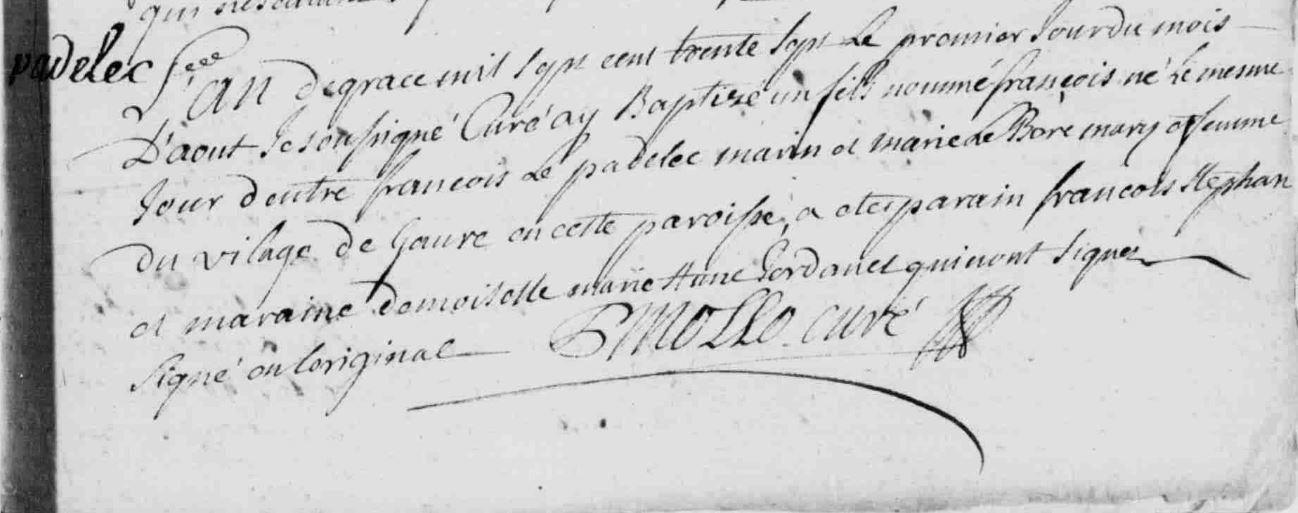 qui
padelec L'AN de grace mil sept cent trente sept Le premier Jour du mois
D'aout Je soussigné Curé ay Baptizé un fils nommé françois né le mesme
Jour d'entre francois Le padelec marin et marie Le Bore mary et femme
du vilage de Gavre en cette paroisse, a eté parain francois Stephan
et maraine demoiselle marie Anne Jordanet qui ont signez
signé en loriginal P MOLLO. curé